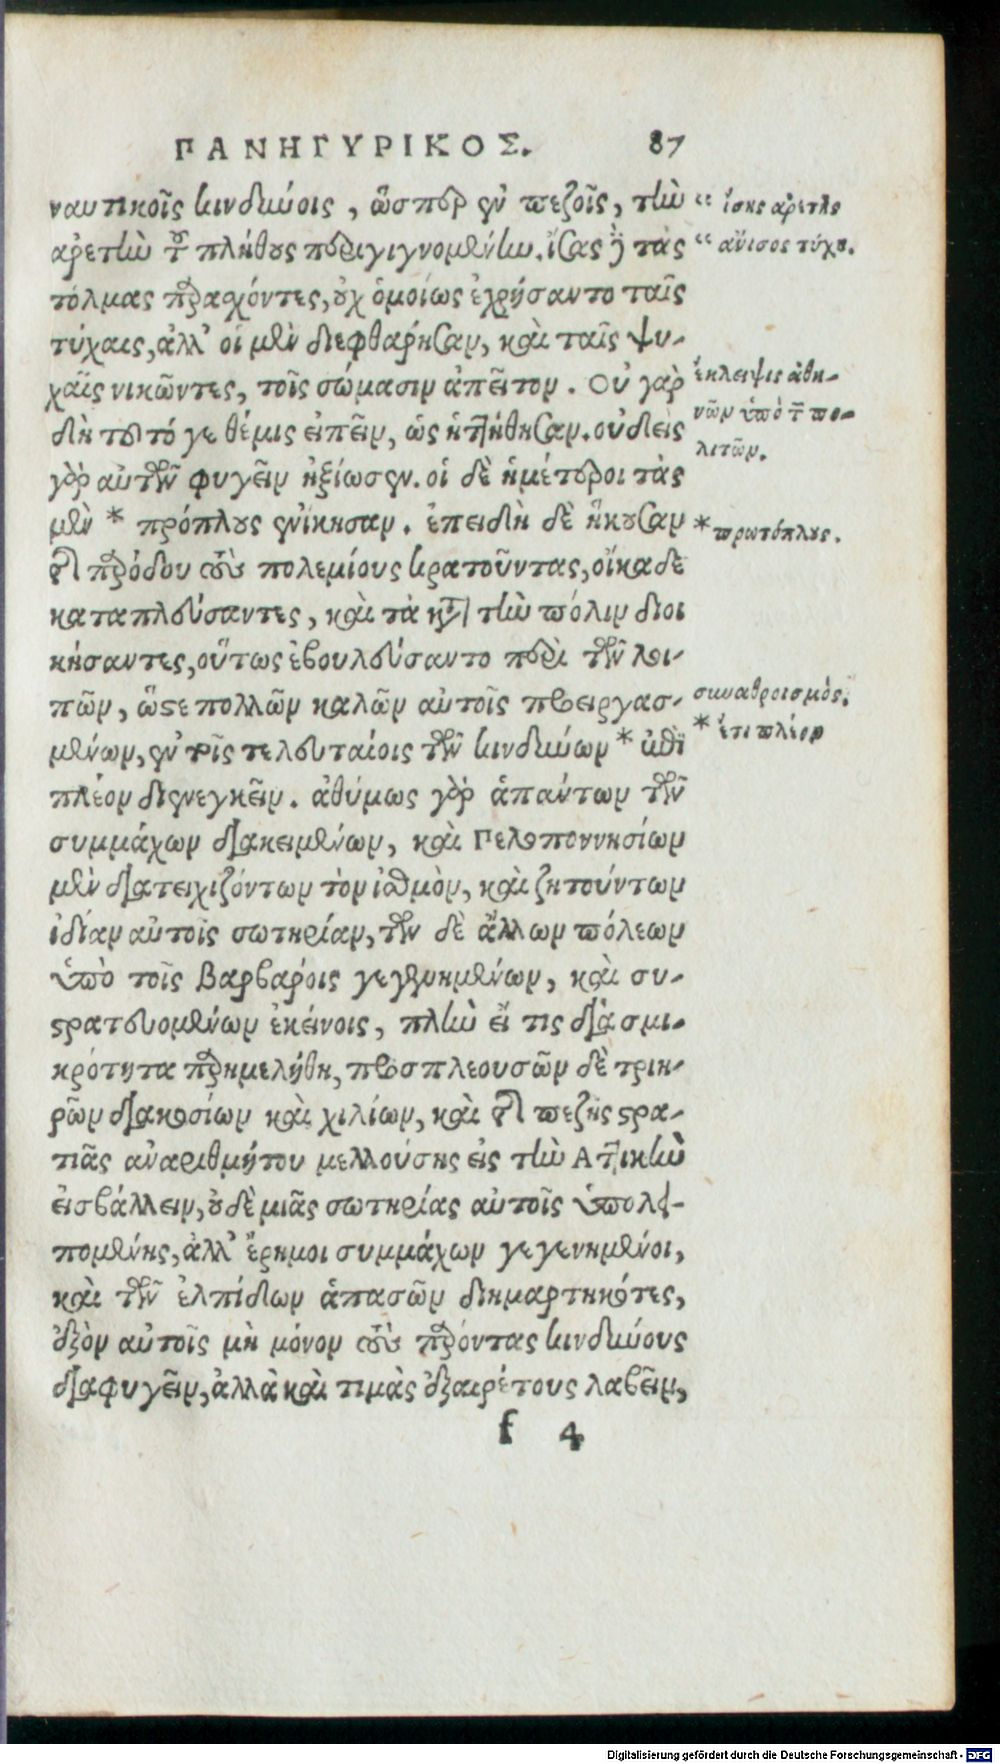 ΠΑΝΗΓΥΡΙΚΟΣ. 87
ναυτικοῖς κινδύνοις, ὥσπερ ἐν πεζοῖς, τὴν
ἀρετὴν τοῦ πλήθους περιγιγνομένην. ἴσας δὲ τὰς
τόλμας παρασχόντες, οὐχ ὁμοίως ἐχρήσαντο ταῖς
τύχαις, ἀλλ' οἱ μὲν διεφθάρησαν, καὶ ταῖς ψυ-
χαῖς νικῶντες, τοῖς σώμασιν ἀπεῖπον. Οὐ γὰρ
δὴ τοῦτό γε θέμις εἰπεῖν, ὡς ἡττήθησαν. οὐδεὶς
γὰρ αὐτῶν φυγεῖν ἠξίωσεν. οἱ δὲ ἡμέτεροι τὰς
μὲν * πρόπλους ἐνίκησαν. ἐπειδὴ δὲ ἤκουσαν
τῆς παρόδου τοὺς πολεμίους κρατοῦντας, οἴκαδε
καταπλεύσαντες, καὶ τὰ κατὰ τὴν πόλιν διοι
κήσαντες, οὕτως ἐβουλεύσαντο περὶ τῶν λοι-
πῶν, ὥστε πολλῶν καλῶν αὐτοῖς προειργασ-
μένων, ἐν τοῖς τελευταίοις τῶν κινδύνων * ἐπὶ
πλέον διενεγκεῖν. ἀθύμως γὰρ ἁπάντων τῶν
συμμάχων διακειμένων, καὶ Πελοποννησίων
μὲν διατειχιζόντων τὸν ἰσθμὸν, καὶ ζητούντων
ἰδίαν αὐτοῖς σωτηρίαν, τῶν δὲ ἄλλων πόλεων
ὑπὸ τοῖς Βαρβάροις γεγενημένων, καὶ συ-
στρατευομένων ἐκείνοις, πλὴν εἴ τις διὰ σμι-
κρότητα παρημελήθη, προσπλεουσῶν δὲ τριη-
ρῶν διακοσίων καὶ χιλίων, καὶ τῆς πεζῆς στρα-
τιᾶς ἀναριθμήτου μελλούσης εἰς τὴν Ἀττικὴν
εἰσβάλλειν, οὐδὲ μιᾶς σωτηρίας αὐτοῖς ὑπολει-
πομένης, ἀλλ' ἔρημοι συμμάχων γεγενημένοι,
καὶ τῶν ἐλπίδων ἁπασῶν διημαρτηκότες,
ἐξὸν αὐτοῖς μὴ μόνον τοὺς παρόντας κινδύνους
διαφυγεῖν, ἀλλὰ καὶ τιμὰς ἐξαιρέτους λαβεῖν,
f 4
“ ἴσης ἀρετῆς
“ ἄνισος τύχη.
ἔκλειψις ἀθη-
νῶν ὑπὸ τῶν πο-
λιτῶν.
* πρωτόπλους.
συναθροισμὸς.
* ἔτι πλέον
Digitalisierung gefördert durch die Deutsche Forschungsgemeinschaft - DFG